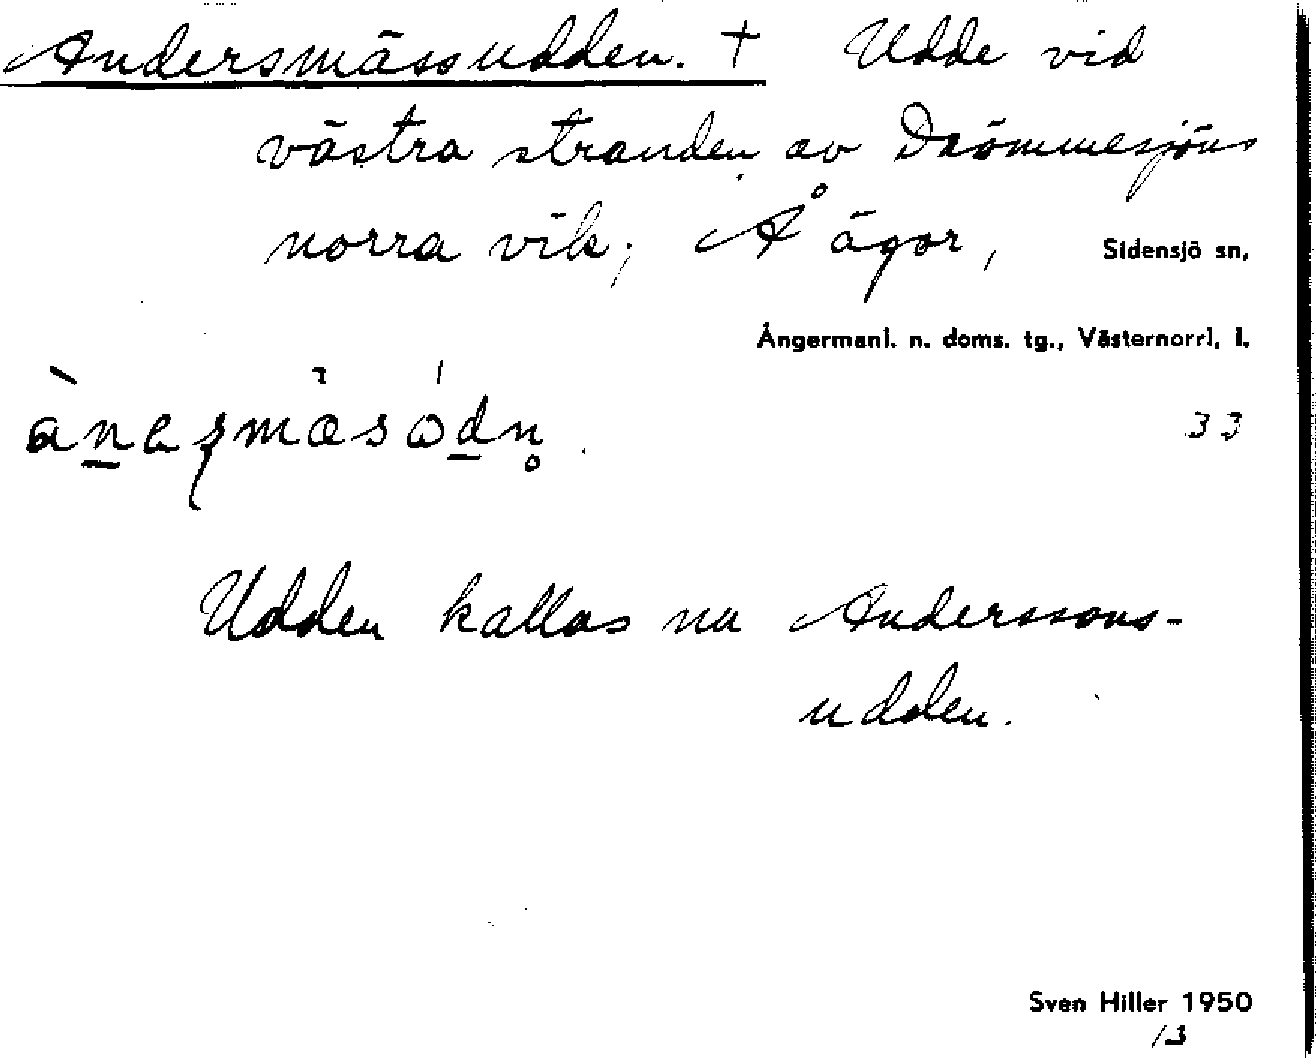 Andersmässudden. † Udde vid
västra stranden av Drömmesjöns
norra vik; Å ägor, Sidensjö sn,
Ångermanl. n. doms. tg., Västernorrl. l.
33
Udden kallas nu Anderssons-
udden.
Sven Hiller 1950
13